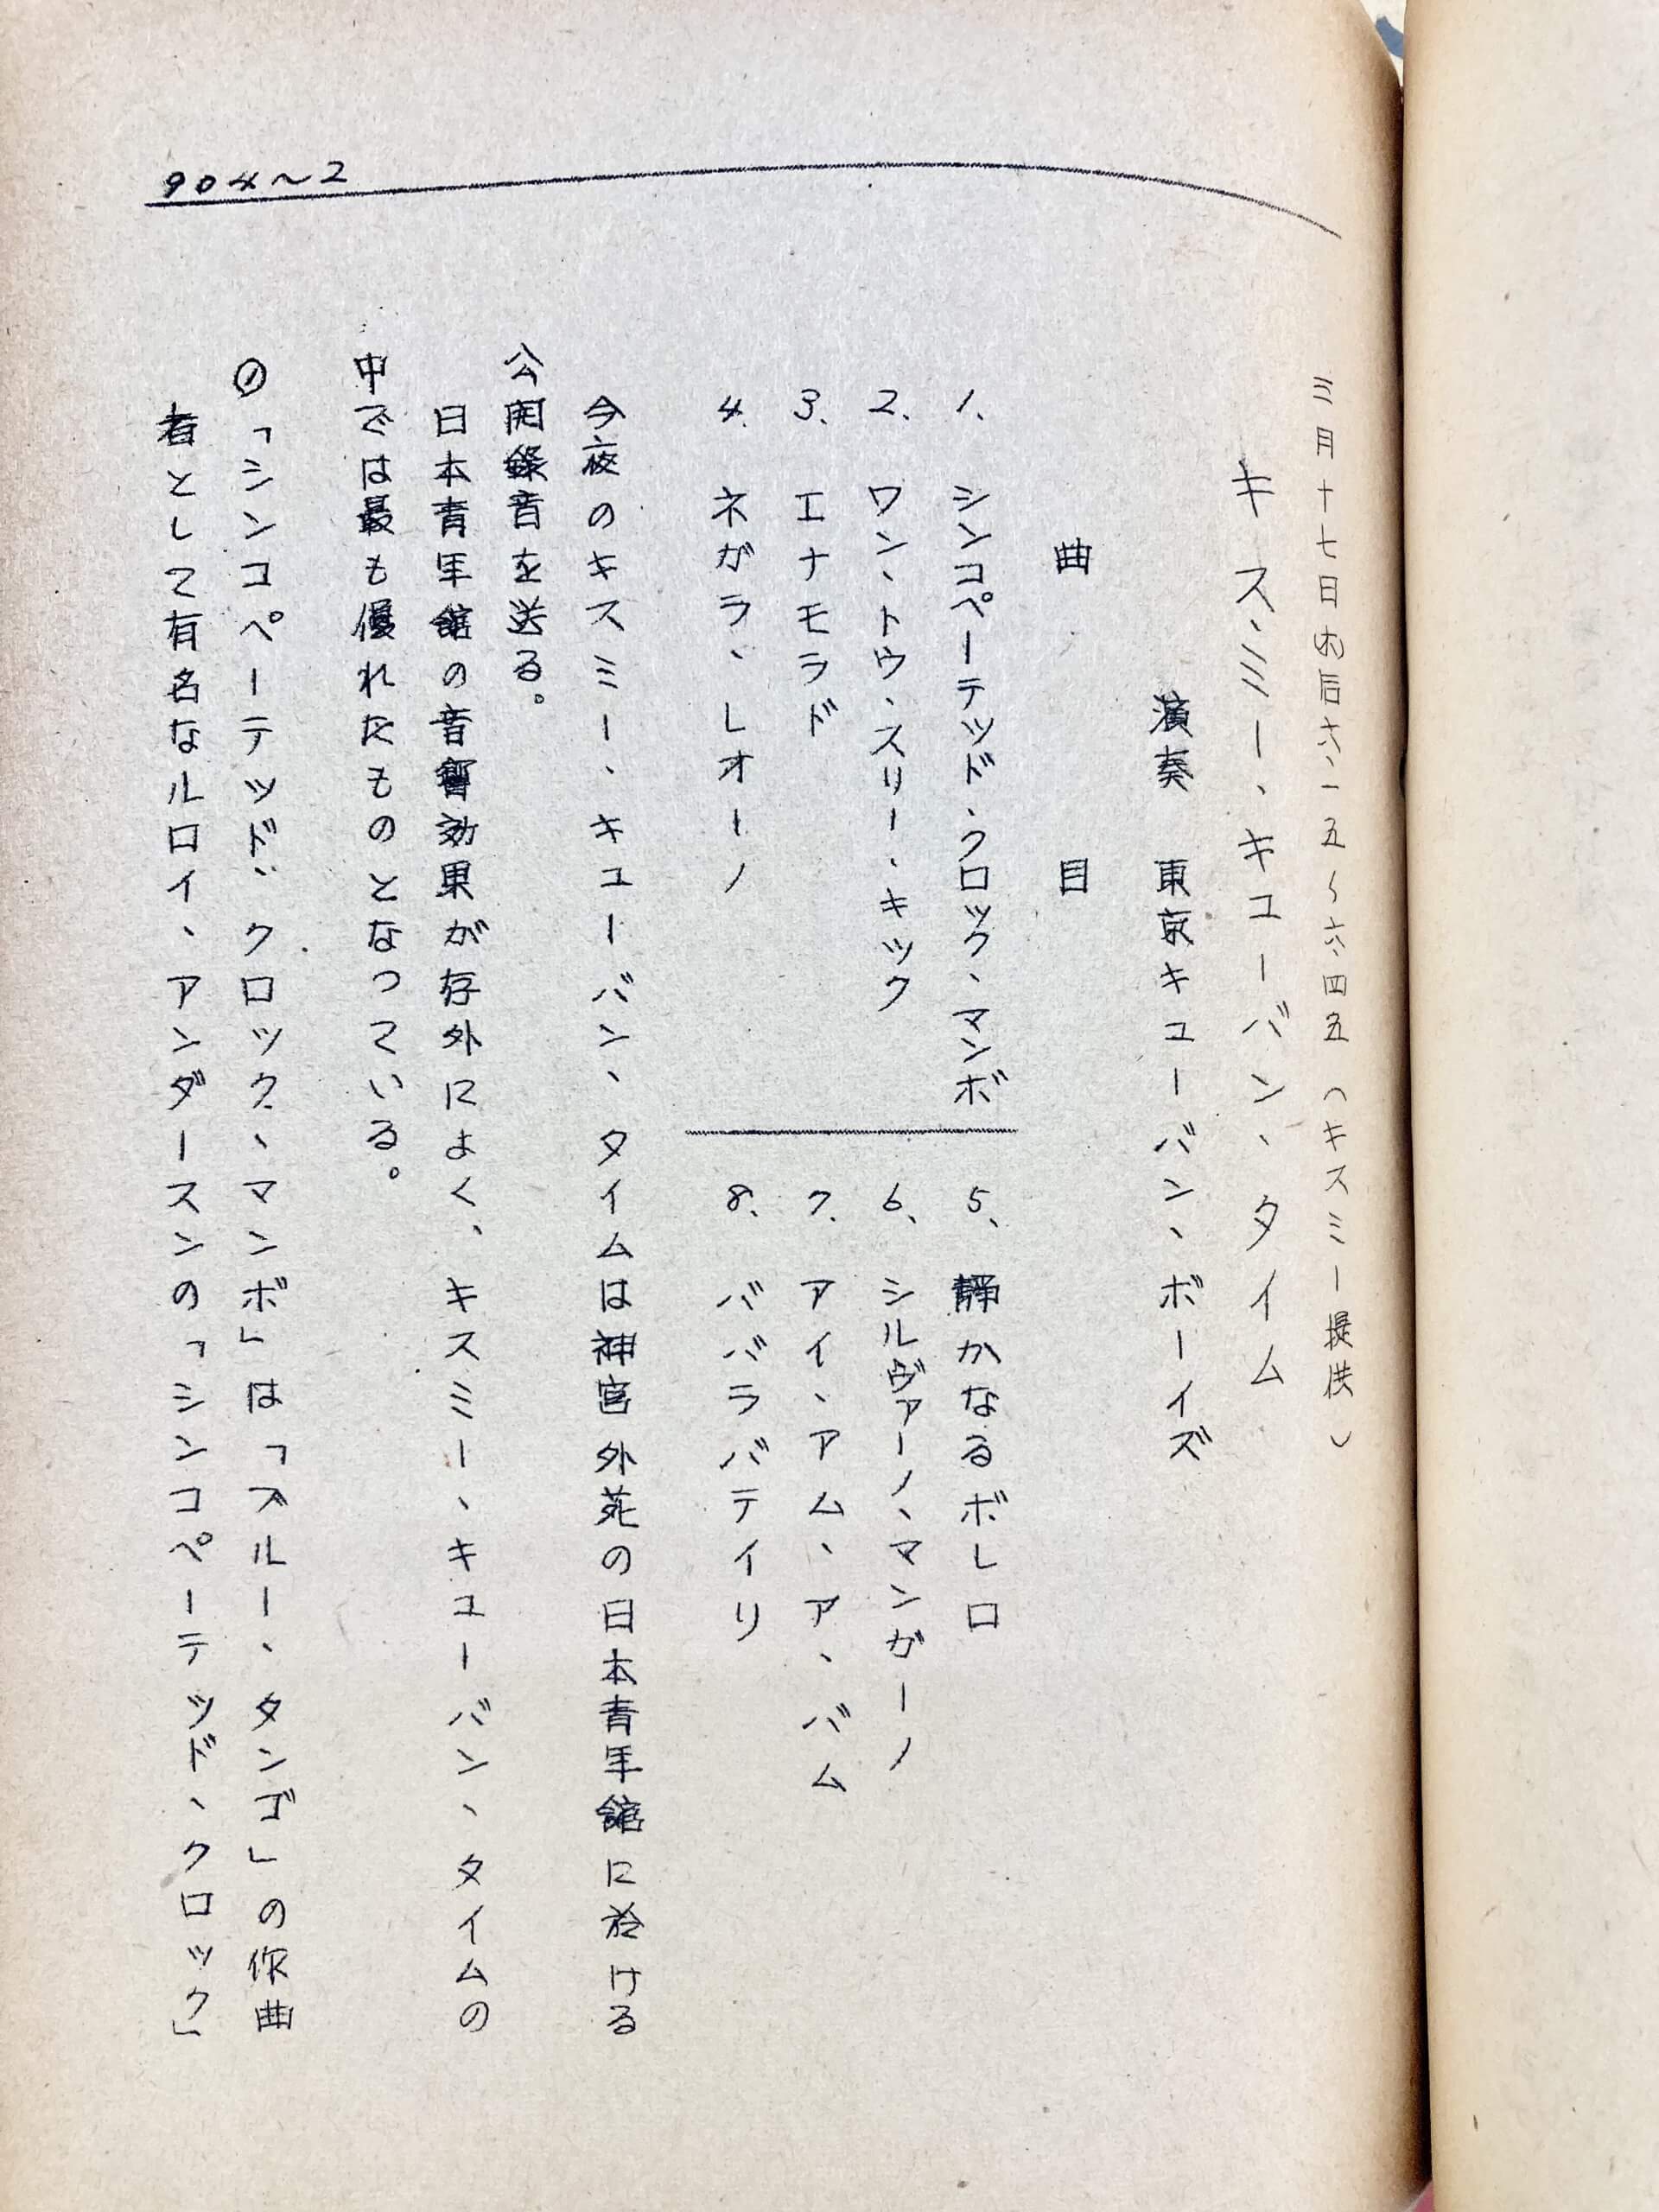 三月十七日の后六・一五~六・四五（キスミー提供）
キス・ミー、キューバン、タイム
演奏 東京キューバン、ボーイズ
曲目
1、シンコペーテッド、クロック、マンボ
2、ワン、トウ、スリー、キック
3、エナモラド
4、ネガラ、レオーノ
5、静かなるボレロ
6、シルヴァーノ、マンガーノ
7、アイ、アム、ア、バム
8、ババラバティリ
今夜のキスミー、キューバン、タイムは神宮外苑の日本青年館に於ける
公開録音を送る。
日本青年館の音響効果が存外によく、キスミー、キューバン、タイムの
中では最も優れたものとなっている。
〇「シンコペーテッド、クロック、マンボ」は「ブルー、タンゴ」の作曲
者として有名なルロイ、アンダースンの「シンコペーテッド、クロック」
904~2